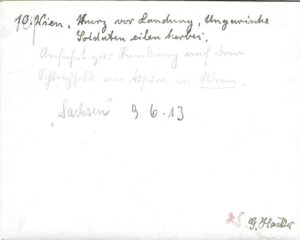 10. Wien. Kurz vor Landung, Ungarische
Soldaten eilen herbei.
Anfahrt zur Landung auf dem
Schlachtfeld von Aspern in Wien.
"Sachsen" 9.6.13
25 G.